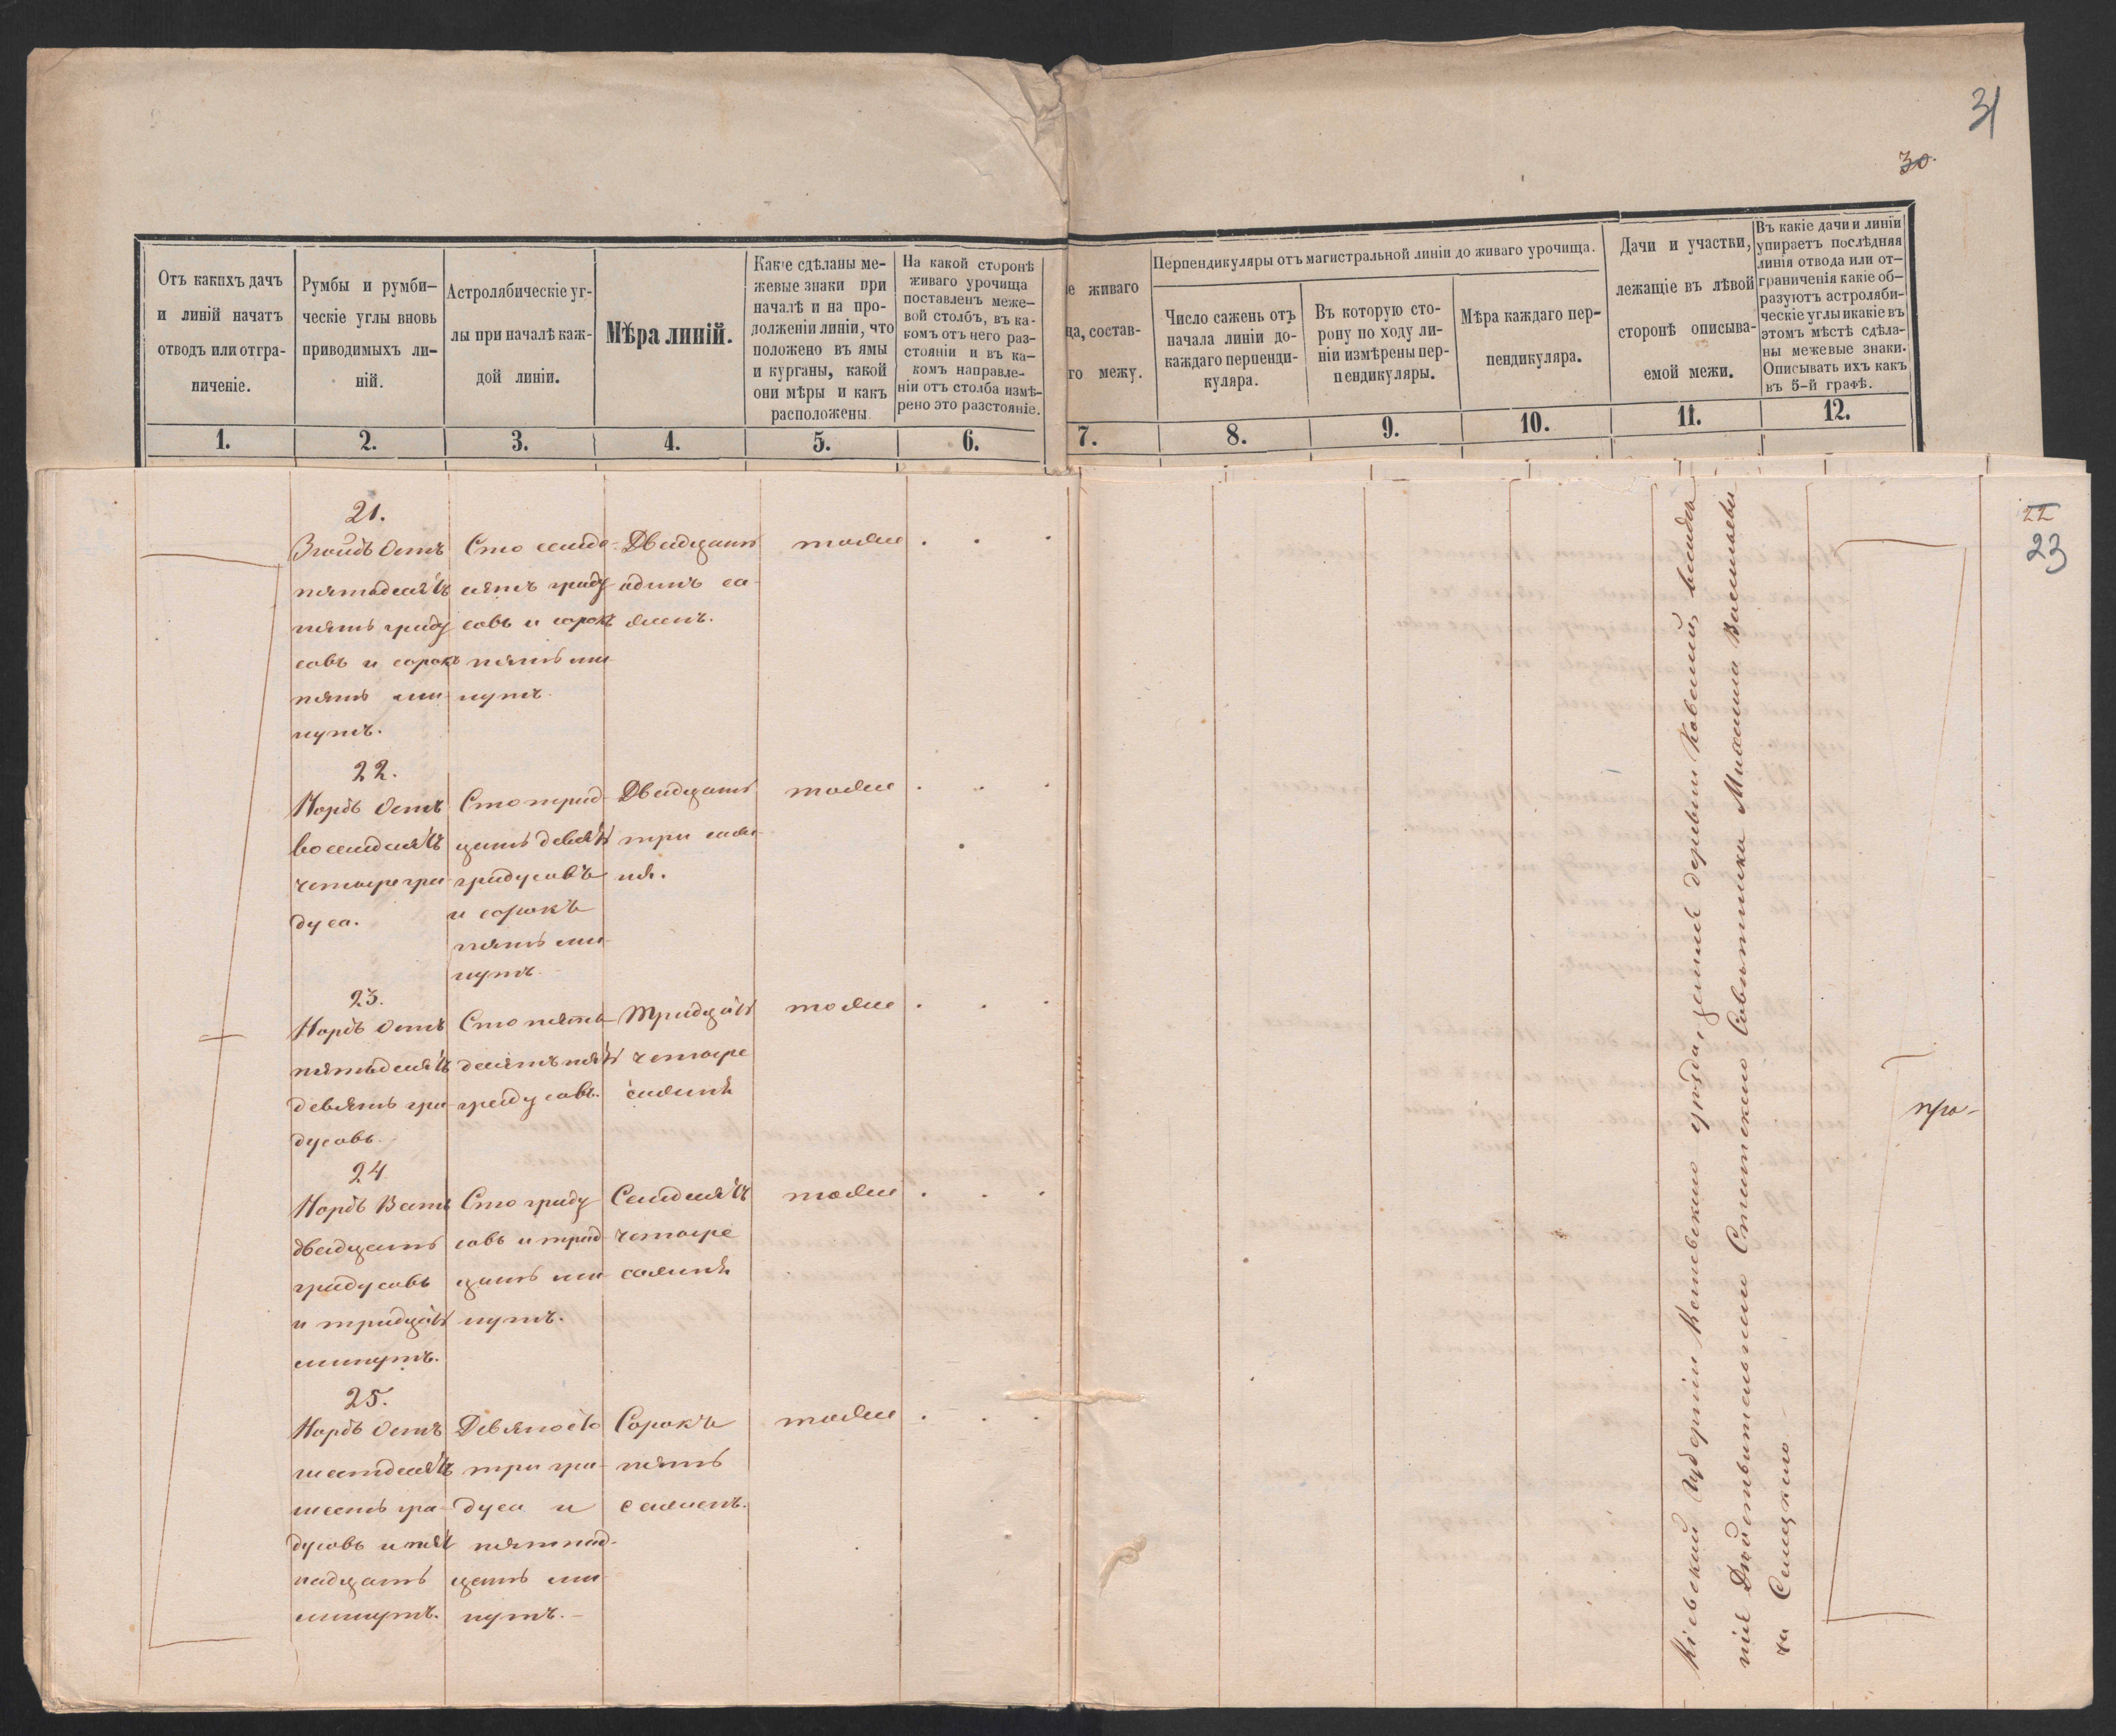 31
30.
Отъ какихъ дачъ
и линій начатъ
отводъ или отгра-
ниченіе.
Румбы и румби-
ческіе углы вновь
приводимыхъ ли-
ній.
Астролябическіе уг-
лы при началѣ каж-
дой линіи.
Мѣра линій.
Какіе сдѣланы ме-
жевые знаки при
началѣ и на про-
долженіи линіи, что
положено въ ямы
и курганы, какой
они мѣры и какъ
расположены.
На какой сторонѣ
живаго урочища
поставленъ меже-
вой столбъ, въ ка-
комъ отъ него раз-
стояніи и въ ка-
комъ направле-
ніи отъ столба измѣ-
рено это разстояніе.
е живаго
ща, состав-
го межу.
Перпендикуляры отъ магистральной линіи до живаго урочища.
Число сажень отъ
начала линіи до
каждаго перпенди-
куляра.
Въ которую сто-
рону по ходу ли-
ніи измѣрены пер-
пендикуляры.
Мѣра каждаго пер-
пендикуляра.
Дачи и участки,
лежащіе въ лѣвой
сторонѣ описыва-
емой межи.
Въ какіе дачи и линіи
упираетъ послѣдняя
линія отвода или от-
граниченія какіе об-
разуютъ астроляби-
ческіе углы и какіе въ
этомъ мѣстѣ сдѣла-
ны межевые знаки.
Описывать ихъ какъ
въ 5-й графѣ.
1. 2. 3. 4. 5. 6. 7. 8. 9. 10. 11. 12.
22
23
21.
Зюйдъ Остъ
пятьдесятъ
пять граду
совъ и сорокъ
пять ми
нутъ.
Сто семьде
сятъ граду
совъ и сорокъ
пять ми
нутъ.
Двадцать
одинъ са-
жень.
тоже
22.
Нордъ Остъ
восемдесятъ
четыре гра
дуса.
Сто трид
цать девять
градусовъ
и сорокъ
пять ми
нутъ.
Двадцать
три саже
ня.
тоже
23.
Нордъ Остъ
пятьдесятъ
девять гра
дусовъ.
Сто пять
десятъ пять
градусовъ.
Тридцать
четыре
сажня
тоже
24
Нордъ Вестъ
двадцать
градусовъ
и тридцать
минутъ.
Сто граду
совъ и трид
цать ми
нутъ.
Семдесятъ
четыре
сажня
тоже
25.
Нордъ Остъ
шестдесятъ
шесть гра-
дусовъ и пят
надцать
минутъ.
Девяносто
три гра-
дуса и
пятнад-
цать ми
нутъ.
Сорокъ
пять
саженъ.
тоже
Кіевской Губерніи Каневскаго уѣзда, земля деревни Ковали, владѣ
нія Дѣйствительнаго Статскаго Совѣтника Михаила Васильеви
ча
про-